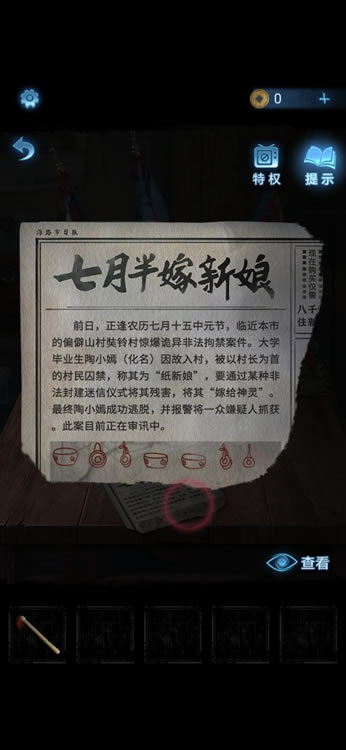 0
+
特权
提示
七月半嫁新娘
前日，正逢农历七月十五中元节，临近本市
的偏僻山村奘铃村惊爆诡异非法拘禁案件。大学
毕业生陶小嫣（化名）因故入村，被以村长为首
的村民囚禁，称其为“纸新娘”，要通过某种非
法封建迷信仪式将其残害，将其“嫁给神灵”。
最终陶小嫣成功逃脱，并报警将一众嫌疑人抓获
。此案目前正在审讯中。
现在购买仅需
八千
住新
查看